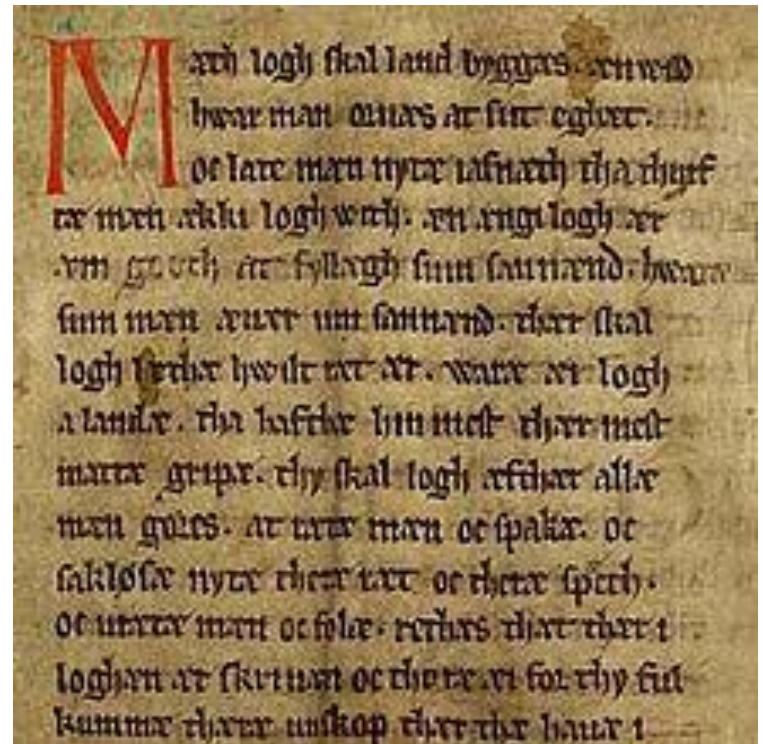 Mæth logh skal land byggæs. æn wild
hwær man oruæs at sitt eghæt.
oc late mæn nytæ iafnæth tha thurf
tæ mæn ækki logh with. æn ængi logh ær
æm gooth at fyllægh sum sannænd. hwaræ
sum mæn æuær um sannænd. thær skal
logh lethæ hwilt ræt ær. waræ æi logh
a landæ. tha hafthæ hin mest thær mest
mattæ gripæ. thy skal logh æfthær allæ
mæn gøres. at rætæ mæn oc spakæ. oc
sakløsæ nytæ theræ ræt oc theræ spech.
oc urætæ mæn oc folæ. rethæs thæt thær i
loghæn ær skriuan oc thoræ æi for thy ful
kummæ theræ unskop thær the hauæ i